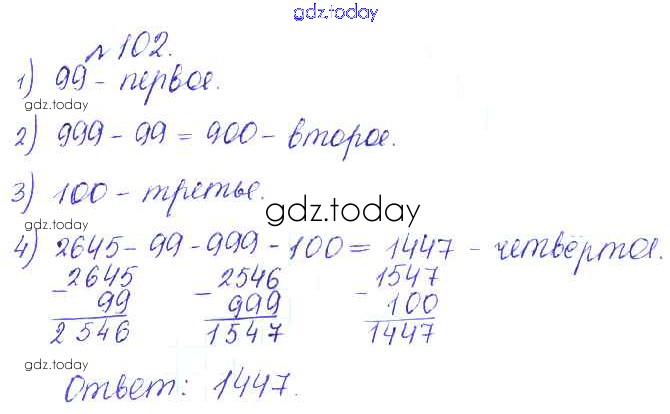 gdz.today
№ 102.
1) 99 - первое.
gdz.today
2) 999 - 99 = 900 - второе.
3) 100 - третье.
gdz.today
gdz.today
4) 2645 - 99 - 999 - 100 = 1447 - четвёртое.
- 2645 - 2546 - 1547
99 999 100
2546 1547 1447
gdz.today
Ответ: 1447.
gdz.today